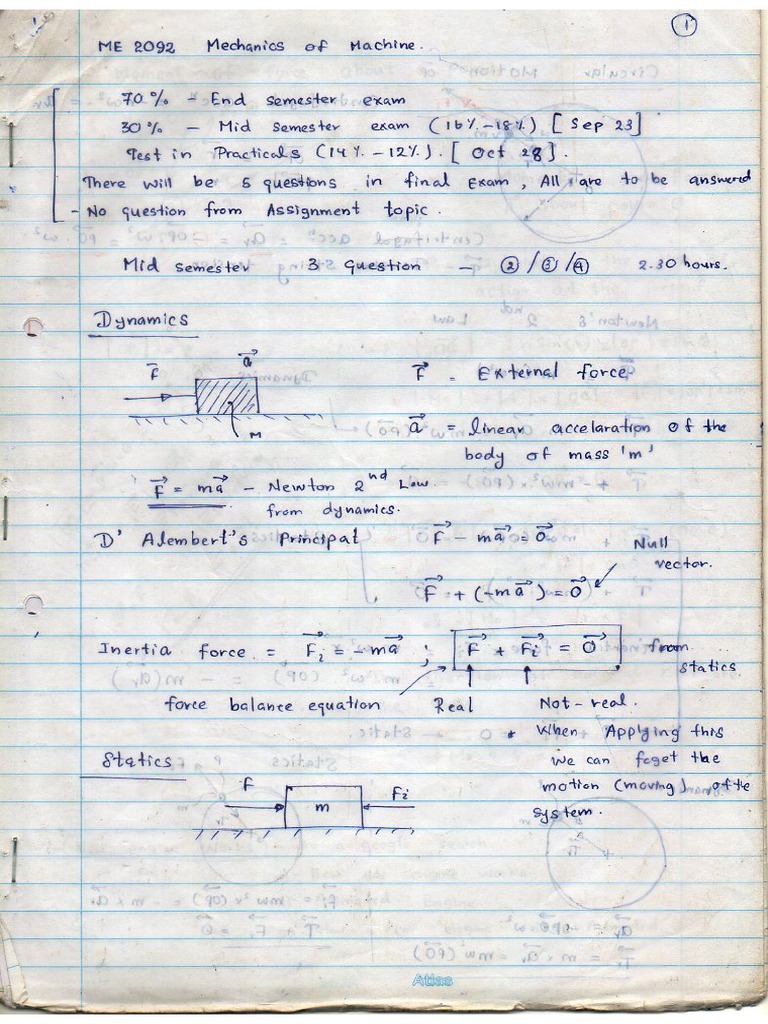 1
ME 2092 Mechanics of Machine.
70% - End semester exam
30% - Mid semester exam (16% - 18%) [Sep 23]
Test in Practicals (14% - 12%). [Oct 28].
There will be 5 questions in final Exam, All are to be answered
- No question from Assignment topic.
Mid semester 3 Question - ② / ③ / ④ 2.30 hours.
Dynamics
F⃗ a⃗ M
F⃗ = External force
a⃗ = linear accelaration of the
body of mass 'm'
F⃗ = ma⃗ - Newton 2nd Law.
from dynamics.
D' Alembert's Principal F⃗ - ma⃗ = 0⃗
Null
vector.
F⃗ + (-ma⃗) = 0⃗
Inertia force = F⃗i = -ma⃗ ; F⃗ + F⃗i = 0⃗ from
statics
force balance equation Real Not-real.
* When Applying this
we can foget the
motion (moving) of the
system.
Statics
F m Fi
Atlas